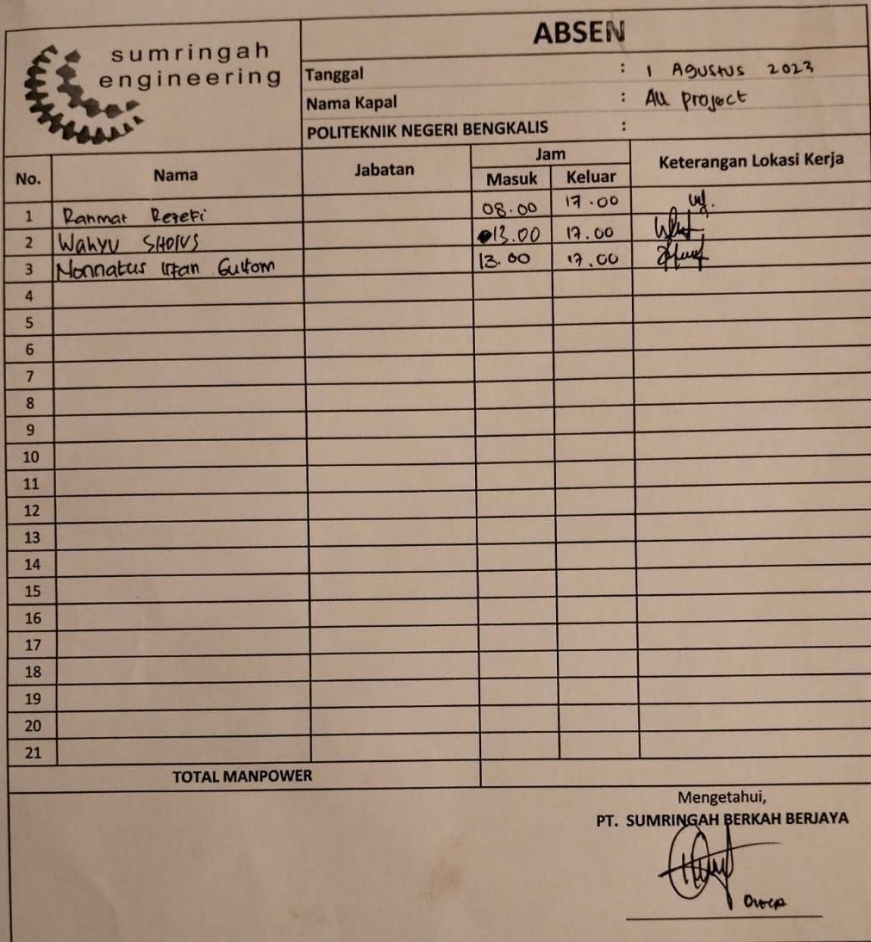 sumringah
engineering
ABSEN
Tanggal : 1 Agustus 2023
Nama Kapal : All project
POLITEKNIK NEGERI BENGKALIS :
No. Nama Jabatan Jam Keterangan Lokasi Kerja
Masuk Keluar
1 Rahmat Rezeki 08.00 17.00
2 Wahyu 13.00 17.00
3 Nonnatus Irfan Gultom 13.00 17.00
4
5
6
7
8
9
10
11
12
13
14
15
16
17
18
19
20
21
TOTAL MANPOWER
Mengetahui,
PT. SUMRINGAH BERKAH BERJAYA